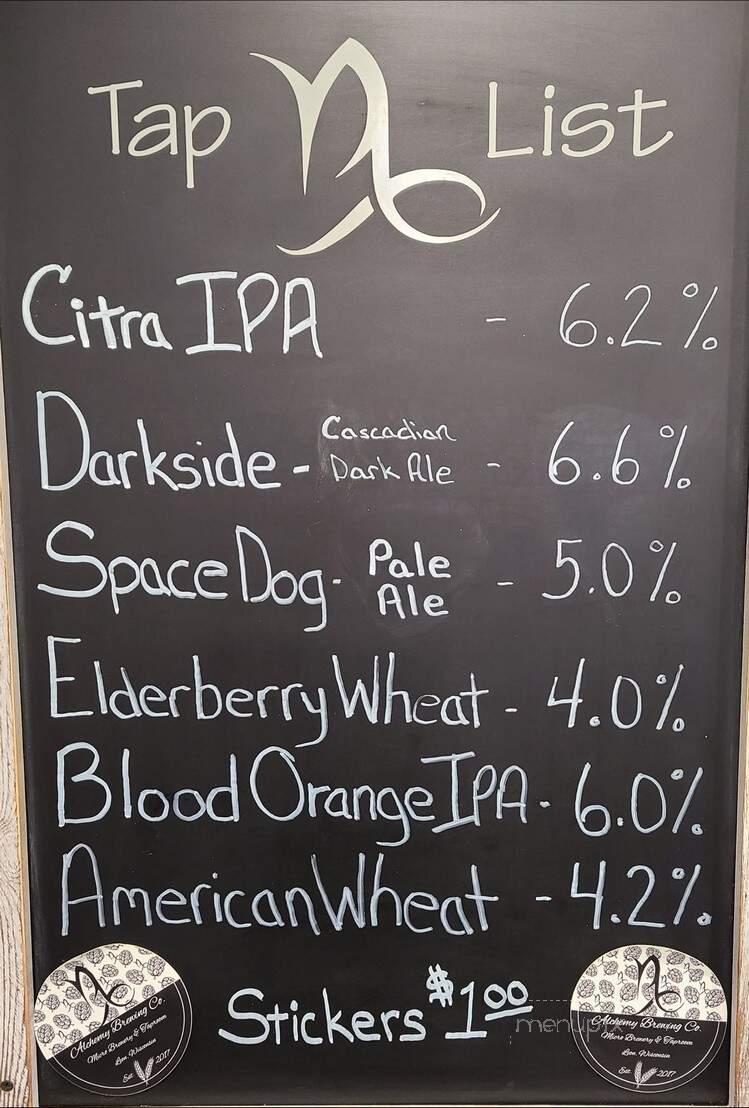 Tap List
Citra IPA - 6.2%
Darkside - Cascadian Dark Ale - 6.6%
Space Dog - Pale Ale - 5.0%
Elderberry Wheat - 4.0%
Blood Orange IPA - 6.0%
American Wheat - 4.2%
Stickers $1.00
menupix
Alchemy Brewing Co.
Micro Brewery & Taproom
Lon, Wisconsin
Est. 2017
Alchemy Brewing Co.
Micro Brewery & Taproom
Lon, Wisconsin
Est. 2017